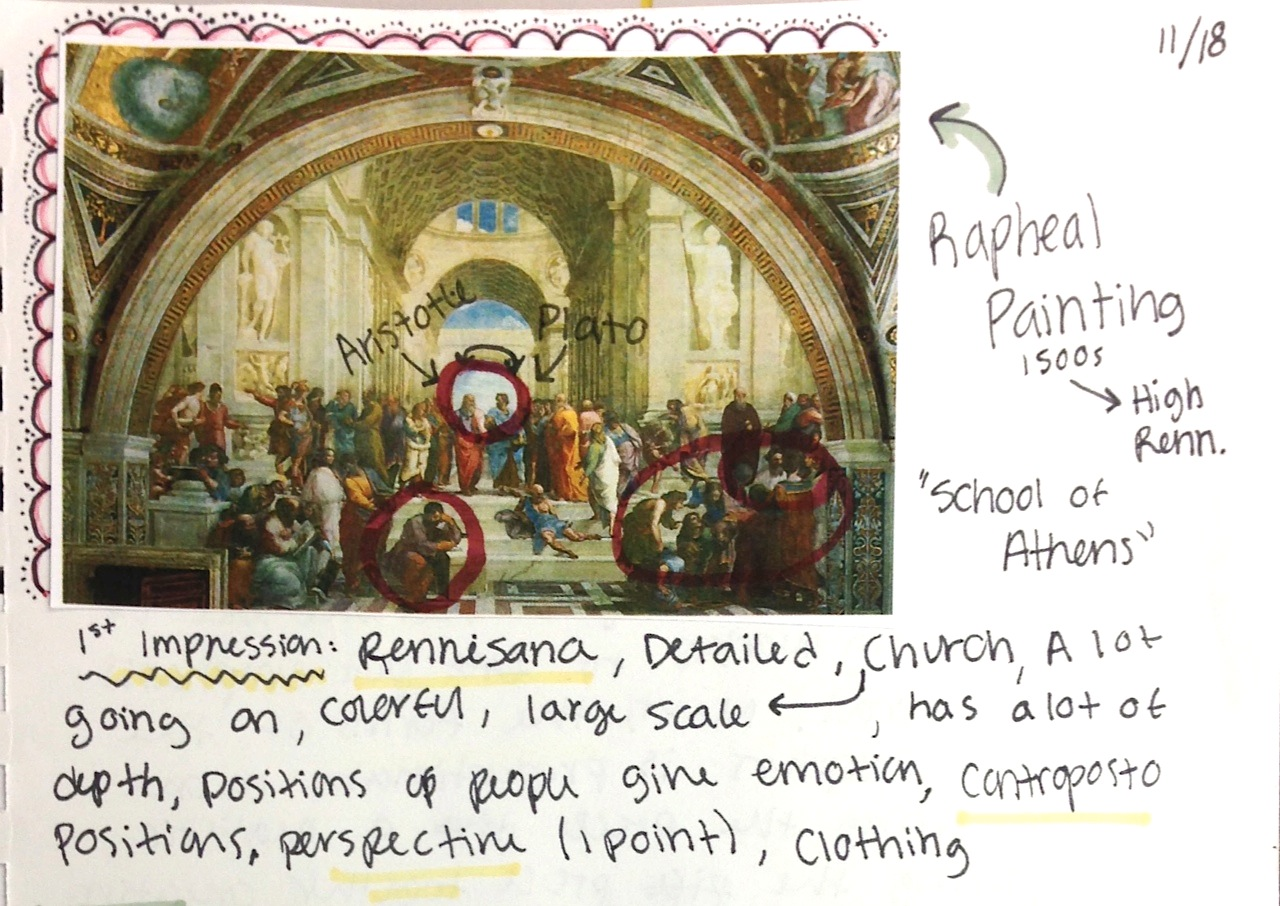 11/18
Rapheal
Painting
1500s
High
Renn.
"School of
Athens"
Aristotle
Plato
1st Impression: Rennisana, Detailed, Church, A lot
going on, colorful, large scale, has a lot of
depth, positions of people give emotion, Controposto
Positions, perspective (1 point), Clothing